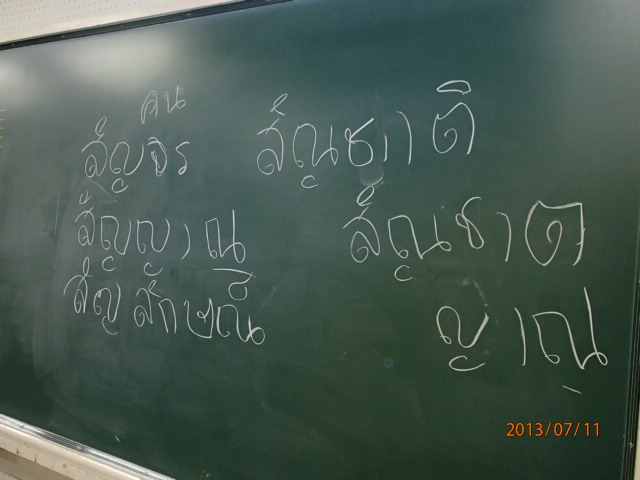 คน
สัญจร สัญชาติ
สัญญาณ สัญชาต
สัญลักษณ์ ญาณ
2013/07/11